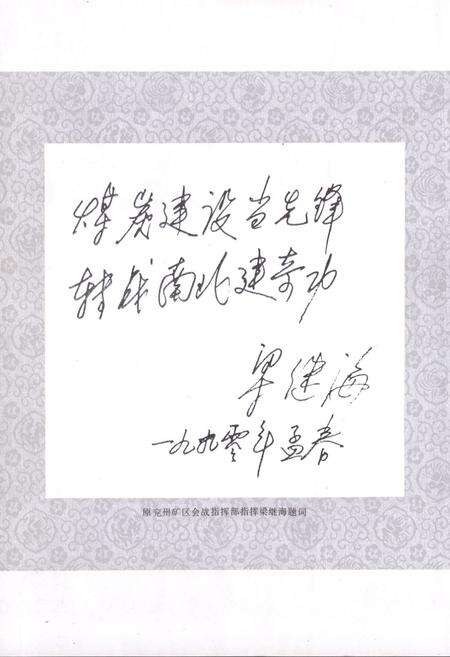 煤炭建设当先锋
转战南北建奇功
梁继海
一九九零年孟春
原兖州矿区会战指挥部指挥梁继海题词